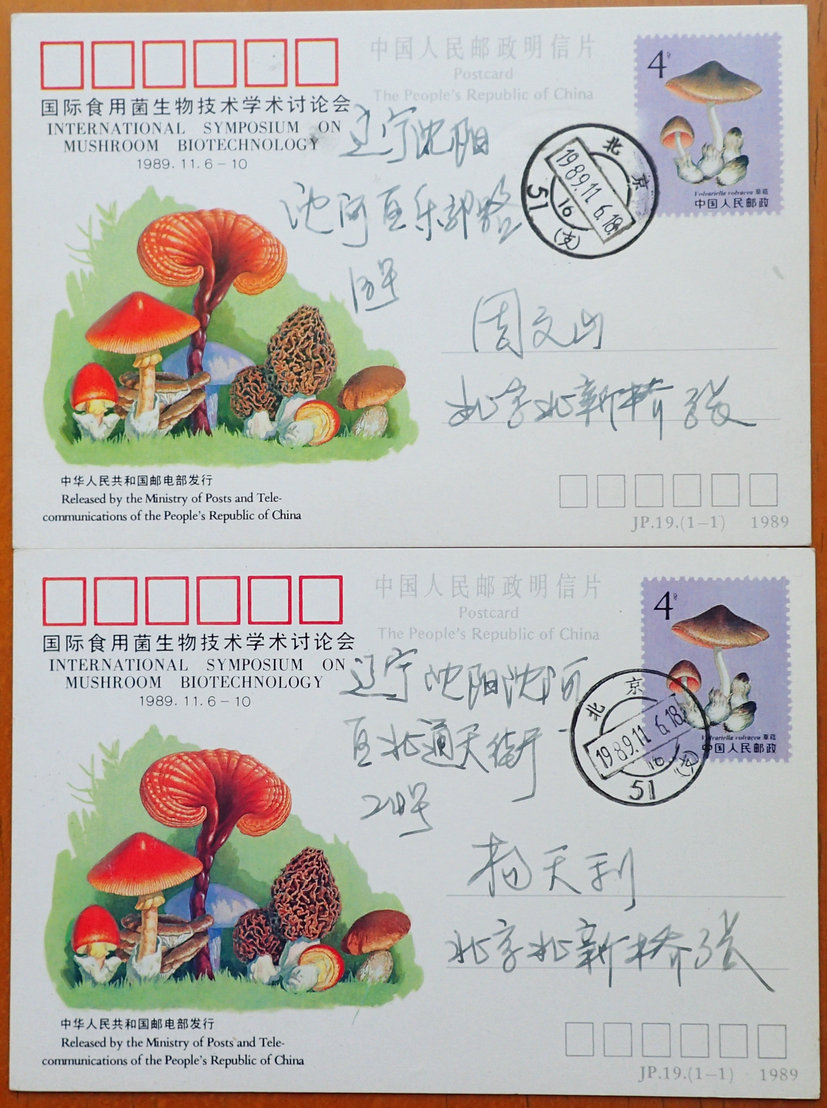 中国人民邮政明信片
Postcard
The People's Republic of China
国际食用菌生物技术学术讨论会
INTERNATIONAL SYMPOSIUM ON
MUSHROOM BIOTECHNOLOGY
1989.11.6-10
4分
Volvariella volvacea 草菇
中国人民邮政
北京
1989.11.6.18
16
(支)
51
辽宁沈阳
沈河区乐郊路
周文山
北京北新桥 张
中华人民共和国邮电部发行
Released by the Ministry of Posts and Tele-
communications of the People's Republic of China
JP.19.(1-1) 1989
中国人民邮政明信片
Postcard
The People's Republic of China
国际食用菌生物技术学术讨论会
INTERNATIONAL SYMPOSIUM ON
MUSHROOM BIOTECHNOLOGY
1989.11.6-10
4分
Volvariella volvacea 草菇
中国人民邮政
北京
1989.11.6.18
16
(支)
51
辽宁沈阳沈河
区北通天街
号
杨天利
北京北新桥 张
中华人民共和国邮电部发行
Released by the Ministry of Posts and Tele-
communications of the People's Republic of China
JP.19.(1-1) 1989